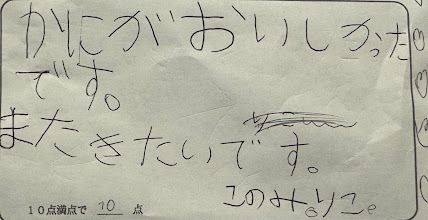 かにがおいしかった
です。
またきたいです。
このみ。りこ。
10点満点で 10 点